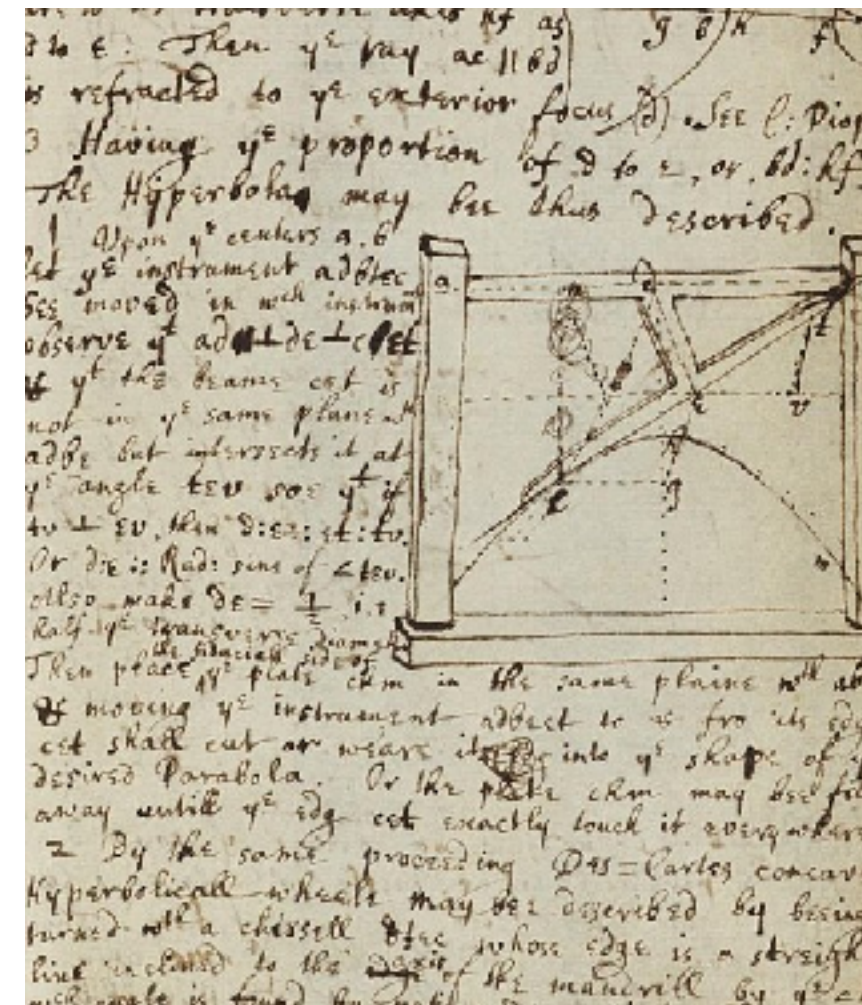 to ε: Then yᵉ ray ac || bd
is refracted to yᵉ exterior focus (d). See C: Diop
3 Having yᵉ proportion of d to e, or, bd: hf
The Hyperbola may bee thus described.
1 Upon yᵉ centers a. b
let yᵉ instrument adbtec
bee moved in wᶜʰ instrum
observe yᵗ ad ⊥ de ⊥ cet
yᵗ the beame cet is
not in yᵉ same plane wᵗʰ
adbe but intersects it at
yᵉ angle tev soe yᵗ if
tv ⊥ ev, then d:e:: et: tv.
Or d:e :: Rad: sine of ∠tev.
Also make de = 1/2 i.e
half yᵉ transverse diameter
the fiduciall side of
Then place yᵉ plate chm in the same plaine wᵗʰ ab
moving yᵉ instrument adbect to & fro its edg
cet shall cut or weare it into yᵉ shape of
desired Parabola. Or the plate chm may bee
away untill yᵉ edg cet exactly touch it every where
2 By the same proceeding Des=Cartes concav
Hyperbolicall wheele may bee described by beeing
turned wᵗʰ a chissell dtec whose edge is a streigh
line inclined to the axis of the mandrill by yᵉ
wᶜʰ angle is found by
g b h f
a
e
t
v
c
g
m